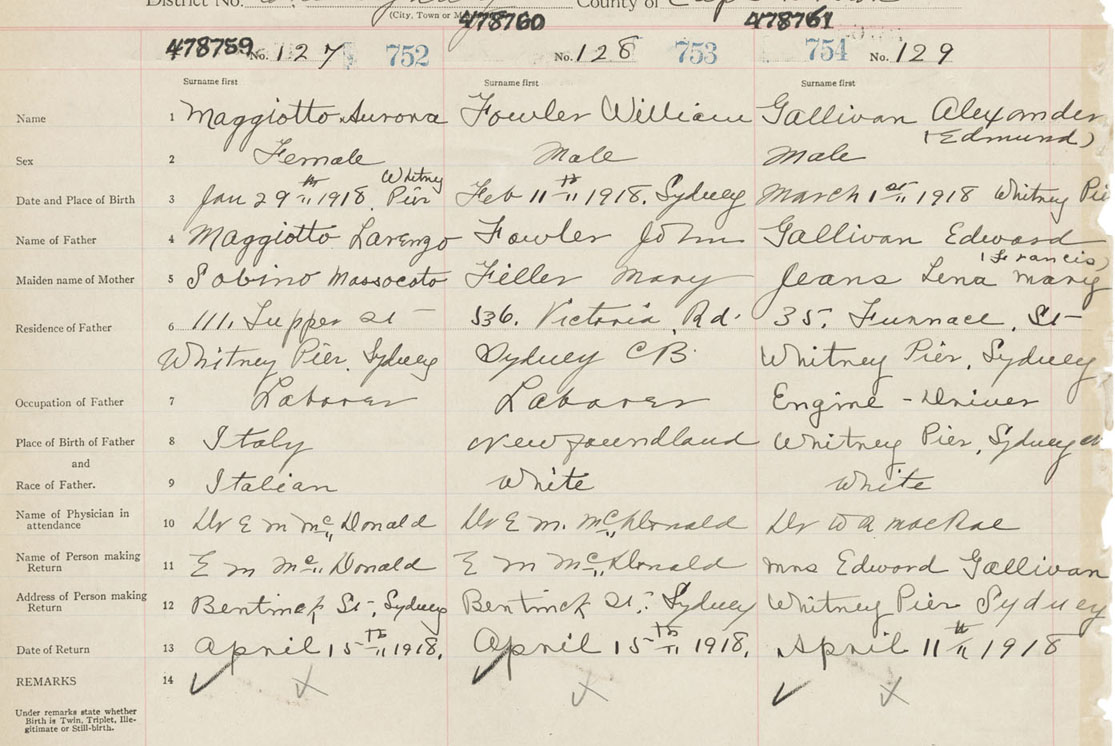 District No. County of
(City, Town or
478759 No. 127 752
478760 No. 128 753
478761 754 No. 129
Surname first Surname first Surname first
Name 1 Maggiotto Aurora Fowler William Gallivan Alexander (Edmund)
Sex 2 Female Male Male
Date and Place of Birth 3 Jan 29th 1918. Whitney Pier Feb 11th 1918. Sydney March 1st 1918 Whitney Pie
Name of Father 4 Maggiotto Larenzo Fowler John Gallivan Edward (Francis)
Maiden name of Mother 5 Sabino Massocoto Filler Mary Jeans Lena Mary
Residence of Father 6 111. Tupper St 536. Victoria Rd. 35. Furnace. St
Whitney Pier. Sydney Sydney C B. Whitney Pier, Sydney
Occupation of Father 7 Laborer Laborer Engine - Driver
Place of Birth of Father 8 Italy Newfoundland Whitney Pier, Sydney
and
Race of Father. 9 Italian White White
Name of Physician in attendance 10 Dr E M McDonald Dr E M. McDonald Dr W A MacRae
Name of Person making Return 11 E M McDonald E M McDonald Mrs Edward Gallivan
Address of Person making Return 12 Bentinck St, Sydney Bentinck St. Sydney Whitney Pier Sydney
Date of Return 13 April 15th 1918. April 15th 1918. April 11th 1918
REMARKS 14
Under remarks state whether
Birth is Twin, Triplet, Ille-
gitimate or Still-birth.